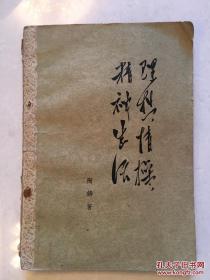 理想情操，
精神生活
陶铸著